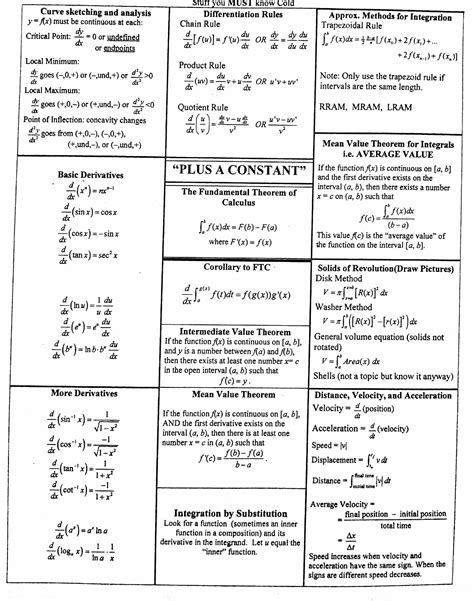 Stuff you MUST know Cold
Curve sketching and analysis
y = f(x) must be continuous at each:
Critical Point: dy/dx = 0 or undefined
or endpoints
Local Minimum:
dy/dx goes (–,0,+) or (–,und,+) or d²y/dx² >0
Local Maximum:
dy/dx goes (+,0,–) or (+,und,–) or d²y/dx² <0
Point of Inflection: concavity changes
d²y/dx² goes from (+,0,–), (–,0,+),
(+,und,–), or (–,und,+)
Differentiation Rules
Chain Rule
d/dx [f(u)] = f'(u) du/dx OR dy/dx = dy/du du/dx
Product Rule
d/dx (uv) = du/dx v + u dv/dx OR u'v + uv'
Quotient Rule
d/dx (u/v) = (du/dx v – u dv/dx)/v² OR (u'v – uv')/v²
Approx. Methods for Integration
Trapezoidal Rule
∫ₐᵇ f(x)dx = 1/2 (b–a)/n [f(x₀) + 2f(x₁) + ...
+ 2f(xₙ₋₁) + f(xₙ)]
Note: Only use the trapezoid rule if
intervals are the same length.
RRAM, MRAM, LRAM
Basic Derivatives
d/dx (xⁿ) = nxⁿ⁻¹
d/dx (sin x) = cos x
d/dx (cos x) = – sin x
d/dx (tan x) = sec² x
d/dx (ln u) = 1/u du/dx
d/dx (eᵘ) = eᵘ du/dx
d/dx (bᵘ) = ln b · bᵘ du/dx
"PLUS A CONSTANT"
The Fundamental Theorem of
Calculus
∫ₐᵇ f(x)dx = F(b) – F(a)
where F'(x) = f(x)
Corollary to FTC
d/dx ∫ₐ^g(x) f(t)dt = f(g(x))g'(x)
Intermediate Value Theorem
If the function f(x) is continuous on [a, b],
and y is a number between f(a) and f(b),
then there exists at least one number x= c
in the open interval (a, b) such that
f(c) = y.
Mean Value Theorem for Integrals
i.e. AVERAGE VALUE
If the function f(x) is continuous on [a, b]
and the first derivative exists on the
interval (a, b), then there exists a number
x = c on (a, b) such that
f(c) = ∫ₐᵇ f(x)dx / (b – a)
This value f(c) is the "average value" of
the function on the interval [a, b].
Solids of Revolution(Draw Pictures)
Disk Method
V = π∫ [R(x)]² dx
Washer Method
V = π∫ₐᵇ ([R(x)]² – [r(x)]²) dx
General volume equation (solids not
rotated)
V = ∫ₐᵇ Area(x) dx
Shells (not a topic but know it anyway)
More Derivatives
d/dx (sin⁻¹ x) = 1/√(1 – x²)
d/dx (cos⁻¹ x) = –1/√(1 – x²)
d/dx (tan⁻¹ x) = 1/(1 + x²)
d/dx (cot⁻¹ x) = –1/(1 + x²)
d/dx (aˣ) = aˣ ln a
d/dx (logₐ x) = 1/ln a · 1/x
Mean Value Theorem
If the function f(x) is continuous on [a, b],
AND the first derivative exists on the
interval (a, b), then there is at least one
number x = c in (a, b) such that
f'(c) = (f(b) – f(a))/(b – a).
Integration by Substitution
Look for a function (sometimes an inner
function in a composition) and its
derivative in the integrand. Let u equal the
"inner" function.
Distance, Velocity, and Acceleration
Velocity = d/dt (position)
Acceleration = d/dt (velocity)
Speed = |v|
Displacement = ∫ v dt
Distance = ∫ initial time final time |v| dt
Average Velocity =
= final position – initial position / total time
= Δx/Δt
Speed increases when velocity and
acceleration have the same sign. When the
signs are different speed decreases.